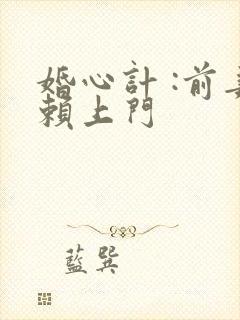 婚心計:前
賴上門
藍巽